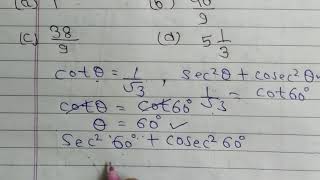 (a) 1 (b) 40/9
(c) 38/9 (d) 5 1/3
cotθ = 1/√3 , sec²θ + cosec²θ =
cotθ = cot60° 1/√3 = cot60°
θ = 60° ✓
sec² 60° + cosec² 60°